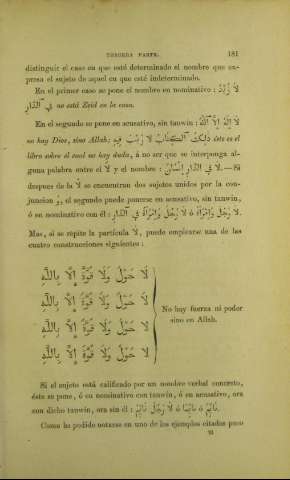 TERCERA PARTE. 181
distinguir el caso en que esté determinado el nombre que ex-
presa el sujeto de aquel en que esté indeterminado.
En el primer caso se pone el nombre en nominativo : لَا زَيْدٌ
فِي ٱلدَّارِ no está Zeid en la casa.
En el segundo se pone en acusativo, sin tanwin : لَا إِلٰهَ إِلَّا ٱللّٰهُ
no hay Dios, sino Allah; ذٰلِكَ ٱلْكِتَابُ لَا رَيْبَ فِيهِ este es el
libro sobre el cual no hay duda, á no ser que se interponga al-
guna palabra entre el لَا y el nombre : لَا فِي ٱلدَّارِ إِنْسَانٌ.—Si
despues de لَا se encuentran dos sujetos unidos por la con-
juncion وَ, el segundo puede ponerse en acusativo, sin tanwin,
ó en nominativo con él : لَا رَجُلَ وَٱمْرَأَةَ ó لَا رَجُلَ وَٱمْرَأَةٌ فِي ٱلدَّارِ.
Mas, si se répite la partícula لَا, puede emplearse una de las
cuatro construcciones siguientes :
لَا حَوْلَ وَلَا قُوَّةَ إِلَّا بِٱللّٰهِ
لَا حَوْلَ وَلَا قُوَّةً إِلَّا بِٱللّٰهِ
لَا حَوْلَ وَلَا قُوَّةٌ إِلَّا بِٱللّٰهِ
لَا حَوْلٌ وَلَا قُوَّةٌ إِلَّا بِٱللّٰهِ
No hay fuerza ni poder
sino en Allah.
Si el sujeto está calificado por un nombre verbal concreto,
éste se pone, ó en nominativo con tanwin, ó en acusativo, ora
con dicho tanwin, ora sin él : لَا رَجُلَ نَائِمٌ ó نَائِمًا ó نَائِمَ.
Como ha podido notarse en uno de los ejemplos citados poco